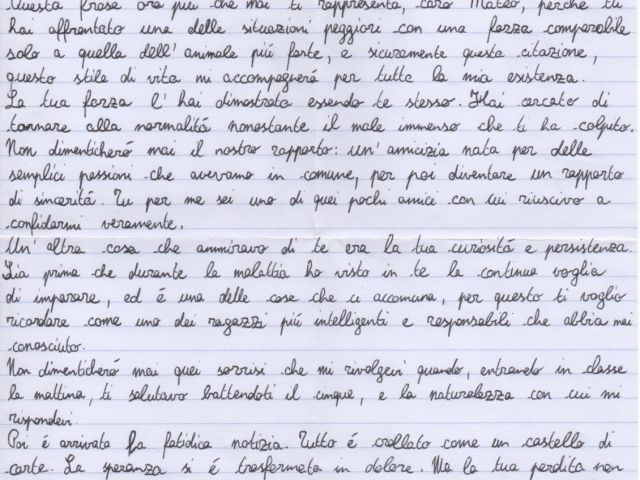 Questa frase ora più che mai ti rappresenta, caro Mateo, perché tu
hai affrontato una delle situazioni peggiori con una forza comparabile
solo a quella dell' animale più forte, e sicuramente questa citazione,
questo stile di vita mi accompagnerá per tutta la mia esistenza.
La tua forza l' hai dimostrata essendo te stesso. Hai cercato di
tornare alla normalitá nonostante il male immenso che ti ha colpito.
Non dimenticheró mai il nostro rapporto: un' amicizia nata per delle
semplici passioni che avevamo in comune, per poi diventare un rapporto
di sinceritá. Tu per me sei uno di quei pochi amici con cui riuscivo a
confidarmi veramente.
Un' altra cosa che ammiravo di te era la tua curiositá e persistenza.
Sia prima che durante la malattia ho visto in te la continua voglia
di imparare, ed é una delle cose che ci accomuna, per questo ti voglio
ricordare come uno dei ragazzi piú intelligenti e responsabili che abbia mai
conosciuto.
Non dimenticheró mai quei sorrisi che mi rivolgevi quando, entrando in classe
la mattina, ti salutavo battendoti il cinque, e la naturalezza con cui mi
rispondevi.
Poi é arrivata la fatidica notizia. Tutto é crollato come un castello di
carte. La speranza si é trasformata in dolore. Ma la tua perdita non